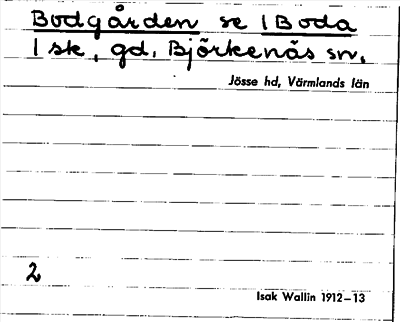 Bodgården se 1 Boda
1 sk, gd, Björkenäs sn,
Jösse hd, Värmlands län
2
Isak Wallin 1912–13